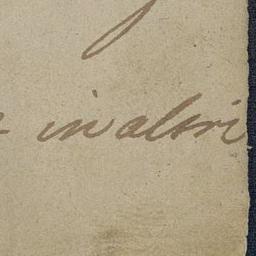 in altri